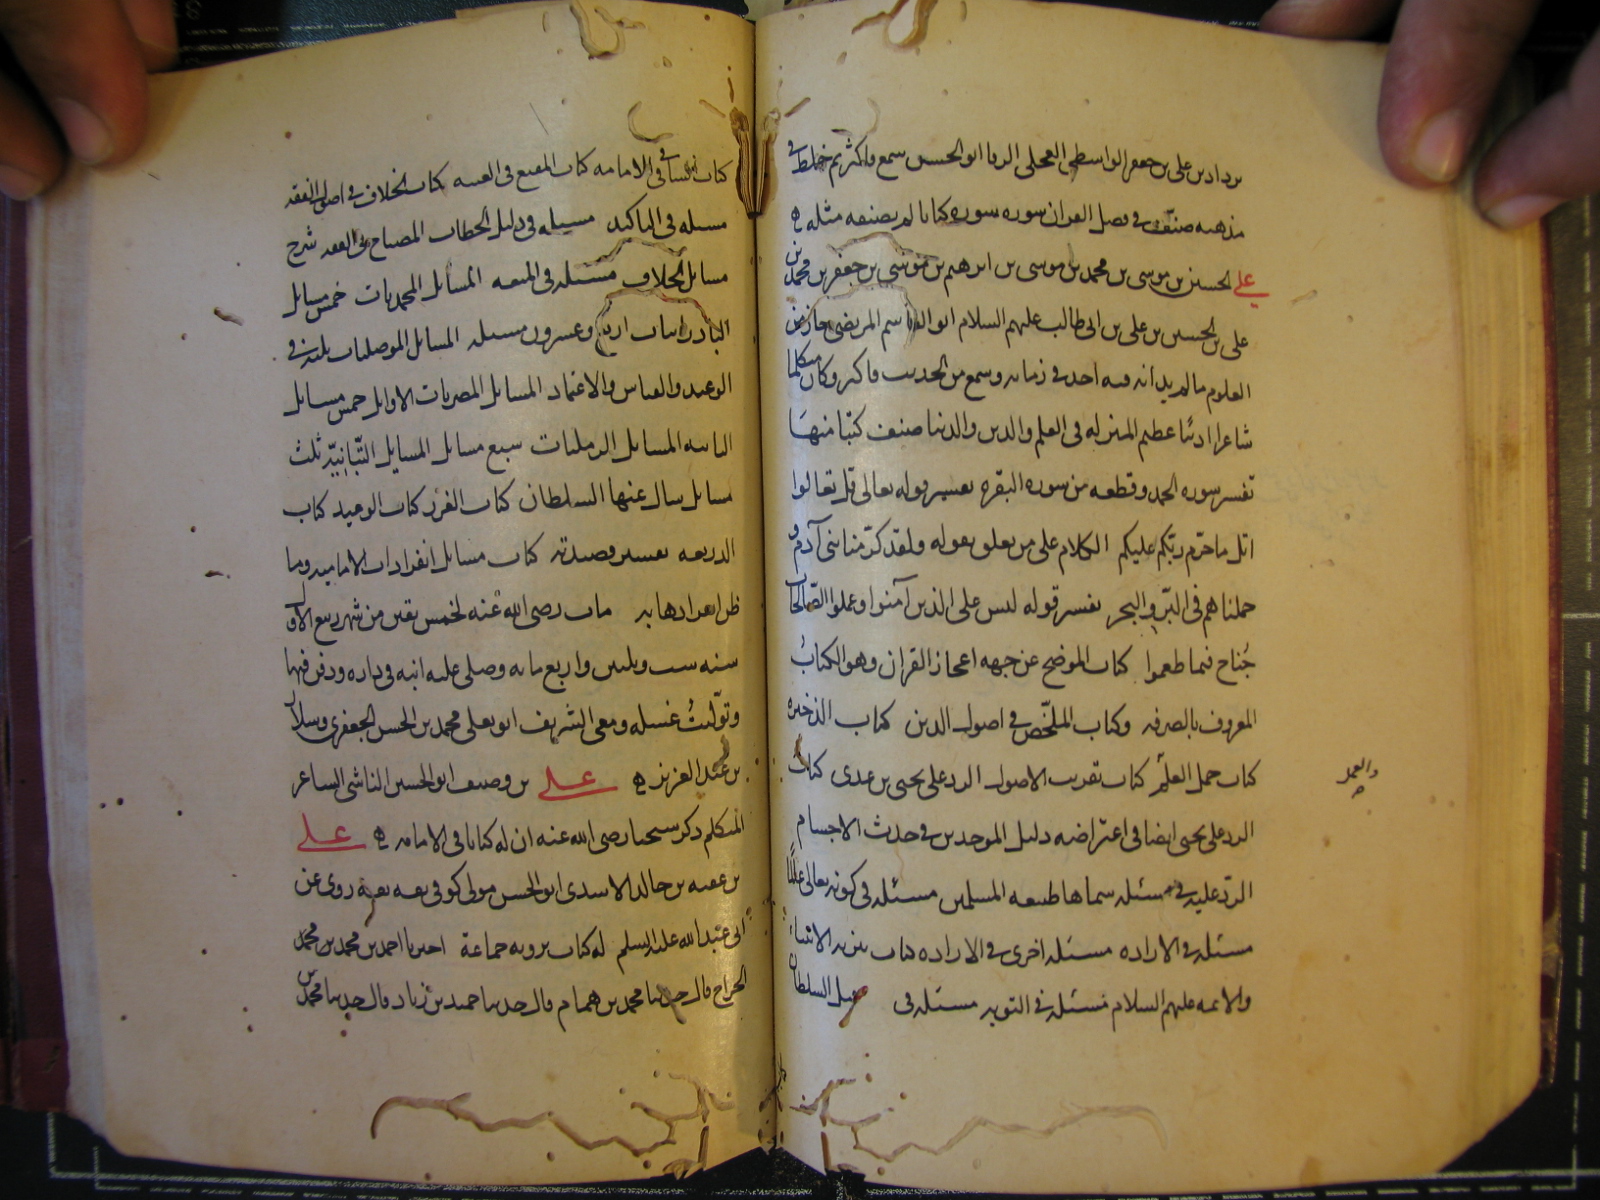 بن داد بن علي بن جعفر الواسطي العجلي الرفا ابو الحسن سمع فاكثر ثم خلط في
مذهبه صنف في فضل القران سوره سوره كتابا لم يصنف مثله
علي الحسين بن موسى بن محمد بن موسى بن ابرهيم بن موسى بن جعفر بن محمد بن
علي بن الحسين بن علي بن ابي طالب عليهم السلام ابو القاسم المرتضى حاز من
العلوم ما لم يدانه فيه احد في زمانه وسمع من الحديث فاكثر وكان متكلما
شاعرا اديبا عظيم المنزله في العلم والدين والدنيا صنف كتبا منها
تفسير سوره الحمد وقطعه من سوره البقره تفسير قوله تعالى قل تعالوا
اتل ما حرم ربكم عليكم الكلام على من تعلق بقوله ولقد كرمنا بني آدم و
حملناهم في البر والبحر تفسير قوله ليس على الذين آمنوا وعملوا الصالحات
جناح فيما طعموا كتاب الموضح عن جهه اعجاز القران وهو الكتاب
المعروف بالصرفه وكتاب الملخص في اصول الدين كتاب الذخيره
كتاب جمل العلم كتاب تقريب الاصول الرد على يحيى بن عدى كتاب
والعمل
الرد على يحيى ايضا في اعتراضه دليل الموحدين في حدث الاجسام
الرد عليه في مسئله سماها طبيعه المسلمين مسئله في كونه تعالى عالما
مسئله في الاراده مسئله اخرى في الاراده كتاب تنزيه الانبياء
والائمه عليهم السلام مسئله في التوبه مسئله في قبل السلطان
كتاب الشافي في الامامه كتاب المقنع في الغيبه كتاب الخلاف في اصول الفقه
مسئله في التاكيد مسئله في دليل الخطاب المصباح في الفقه شرح
مسائل الخلاف مسئله في المتعه المسائل المحمديات خمس مسايل
البادرايات اربع وعشرون مسئله المسائل الموصليات ثلثه في
الوعيد والقياس والاعتماد المسائل المصريات الاوايل خمس مسائل
الثانيه المسائل الرمليات سبع مسائل المسايل التبانيه ثلث
مسائل سال عنها السلطان كتاب الغرر كتاب الوعيد كتاب
الذريعه تفسير قصيدته كتاب مسائل انفرادات الاماميه وما
ظن انفرادها به مات رضى الله عنه لخمس بقين من شهر ربيع الاول
سنه ست وثلثين واربع مايه وصلى عليه ابنه في داره ودفن فيها
وتوليت غسله ومعي الشريف ابو يعلى محمد بن الحسن الجعفرى وسلار
بن عبد العزيز علي بن وصيف ابو الحسين الناشي الشاعر
المتكلم ذكر شيخنا رضى الله عنه ان له كتابا في الامامه علي
بن عقبه بن خالد الاسدى ابو الحسن مولى كوفى ثقه ثقه روى عن
ابي عبد الله عليه السلم له كتاب يرويه جماعة اخبرنا احمد بن محمد بن محمد
الجراح قال حدثنا محمد بن همام قال حدثنا حميد بن زياد قال حدثنا محمد بن